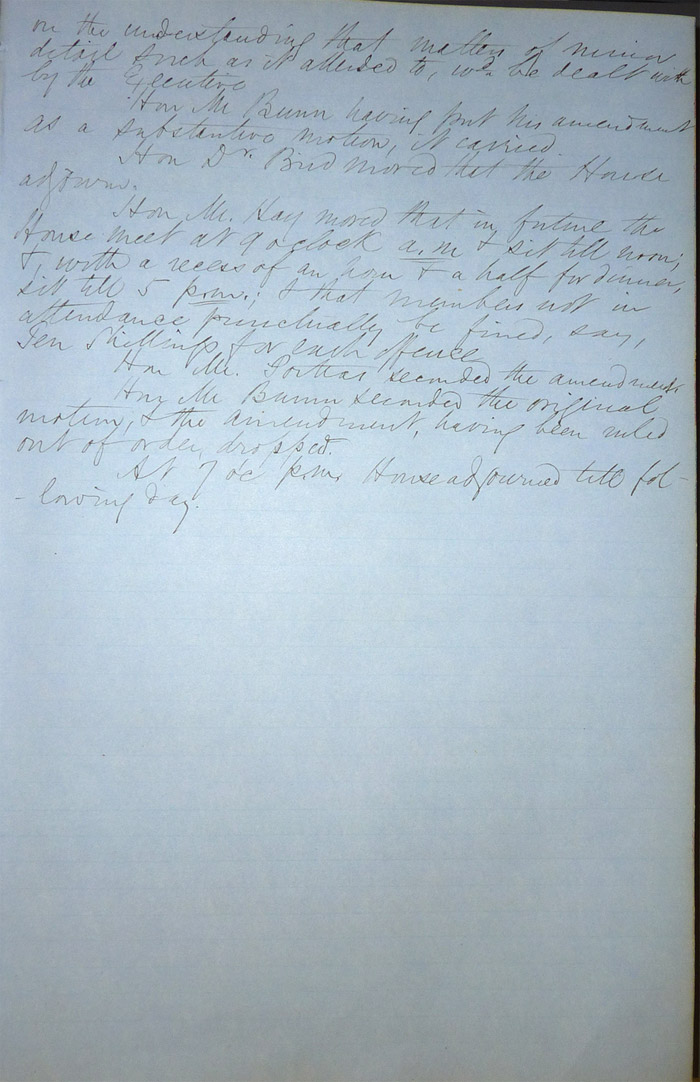 on the understanding that matters of minor
detail such as it alluded to, wd. be dealt with
by the Executive
Hon Mr Bunn having put his amendment
as a substantive motion, it carried
Hon Dr. Bird moved that the House
adjourn.
Hon Mr. Hay moved that in future the
House meet at 9 oclock a.m & sit till noon;
&, with a recess of an hour & a half for dinner,
sit till 5 p.m.; & that members not in
attendance punctually be fined, say,
Ten Shillings for each offence
Hon Mr. seconded the amendment
Hon Mr Bunn seconded the original
motion, & the amendment, having been ruled
out of order, dropped.
At 7 oc p.m. House adjourned till fol-
-lowing day.